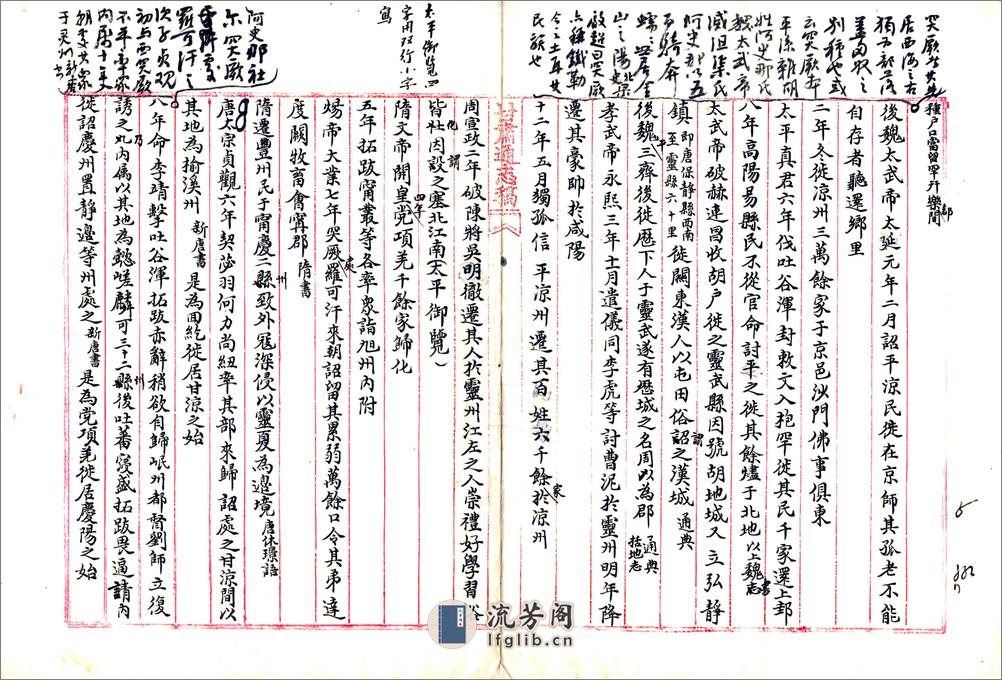 種戶口當留平升樂間
後魏太武帝太延元年二月詔平涼民徙在京師其孤老不能
自存者聽還鄉里
二年冬徙涼州三萬餘家于京邑沙門佛事俱東
太平真君六年伐吐谷渾封敕文入枹罕徙其民千家還上邽
八年高陽易縣民不從官命討平之徙其餘燼于北地以上魏書志
太武帝破赫連昌收胡戶徙之靈武縣因號胡地城又立弘靜
鎮即唐保靜縣西南至靈縣六十里徙關東漢人以屯田俗謂之漢城通典
後魏平三齊後徙歷下人于靈武遂有歷城之名周以為郡通典括地志
孝武帝永熙三年十月遣儀同李虎等討曹泥於靈州明年降
遷其豪帥於咸陽
十二年五月獨孤信平涼州遷其百姓六千餘家於涼州
甘肅通志稿
周宣政二年破陳將吳明徹遷其人於靈州江左之人崇禮好學習俗
皆化因謂之塞北江南（太平御覽）
隋文帝開皇四年党項羌千餘家歸化
五年拓跋甯叢等各率眾詣旭州內附
煬帝大業七年突厥處羅可汗來朝詔留其累弱萬餘口令其弟達
度闕牧畜會甯郡隋書
隋遷豐州民于甯慶二州縣致外寇深侵以靈夏為邊境唐休璟語
唐太宗貞觀六年契苾羽何力尚紐率其部來歸詔處之甘涼間以
其地為榆溪州新唐書是為回紇徙居甘涼之始
八年命李靖擊吐谷渾拓跋赤辭稍欲自歸岷州都督劉師立復
誘之乃內屬以其地為懿嵯麟可三十二州縣後吐蕃寖盛拓跋畏逼請內
徙詔慶州置靜邊等州處之新唐書是為党項羌徙居慶陽之始
突厥其先
居西海之右
獨為部落
蓋匈奴之
別種也或
云突厥本
平涼雜胡
姓阿史那氏
魏太武帝
滅沮渠氏
阿史那以五
百騎奔
蠕蠕世居金
山之陽
突厥
六種鐵勒
民族也
太平御覽四
字用双行小字
寫
阿史那社
尒突厥
處羅可汗之
次子貞觀
初与西突厥
不平率家
內屬十年
朝
于靈州
流芳阁
lfglib.cn